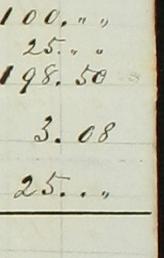 100. " "
25. " "
198. 50
3. 08
25. . "